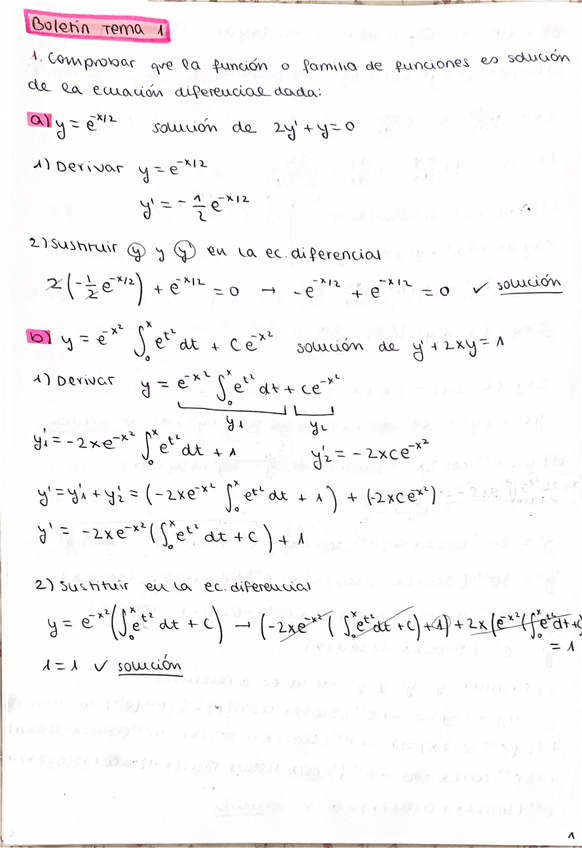 Boletín Tema 1
1. Comprobar que la función o familia de funciones es solución
de la ecuación diferencial dada:
a) y = e^{-x/2} solución de 2y' + y = 0
1) Derivar y = e^{-x/2}
y' = -\frac{1}{2} e^{-x/2}
2) Sustituir y y y' en la ec. diferencial
2(-\frac{1}{2} e^{-x/2}) + e^{-x/2} = 0 → -e^{-x/2} + e^{-x/2} = 0 ✓ solución
b) y = e^{-x^2} ∫_0^x e^{t^2} dt + C e^{-x^2} solución de y' + 2xy = 1
1) Derivar y = e^{-x^2} ∫_0^x e^{t^2} dt + ce^{-x^2}
y_1 y_2
y_1' = -2xe^{-x^2} ∫_0^x e^{t^2} dt + 1 y_2' = -2xce^{-x^2}
y' = y_1' + y_2' = (-2xe^{-x^2} ∫_0^x e^{t^2} dt + 1) + (-2xce^{x^2})
y' = -2xe^{-x^2} (∫_0^x e^{t^2} dt + C) + 1
2) Sustituir en la ec. diferencial
y = e^{-x^2} (∫_0^x e^{t^2} dt + C) → (-2xe^{-x^2} (∫_0^x e^{t^2} dt + C) + 1) + 2x(e^{-x^2} (∫_0^x e^{t^2} dt + C)
= 1
1 = 1 ✓ solución
1